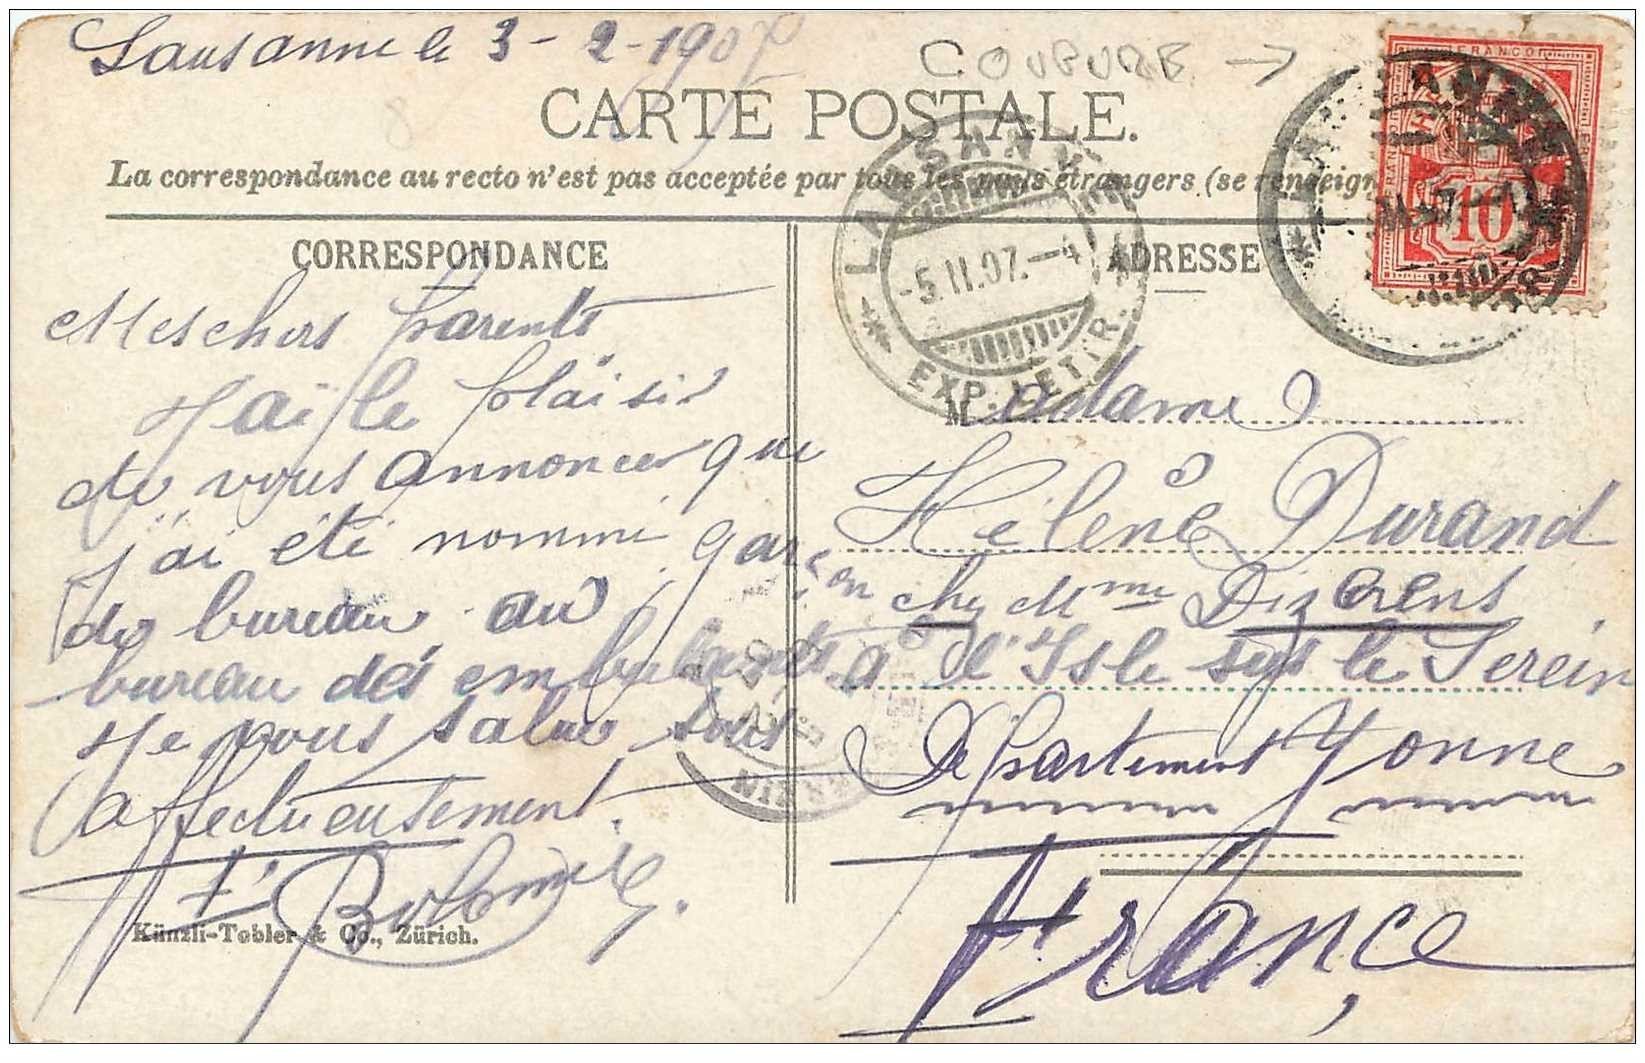 Lausanne le 3-2-1907
COUPURE →
CARTE POSTALE.
La correspondance au recto n'est pas acceptée par tous les pays étrangers (se renseign
CORRESPONDANCE
Mes chers parents
J'ai le plaisir
de vous annoncer que
j'ai été nommé garçon
de bureau au
bureau des embulants
Je vous salue tous
affectueusement.
Künzli-Tobler & Co., Zürich.
ADRESSE
Madame
Hélène Durand
chez Mme Dizerens
à l'Isle sus le Serein
Département Yonne
France
LAUSANNE
-5.II.07.-4
EXP. LETTR.
FRANCO
10